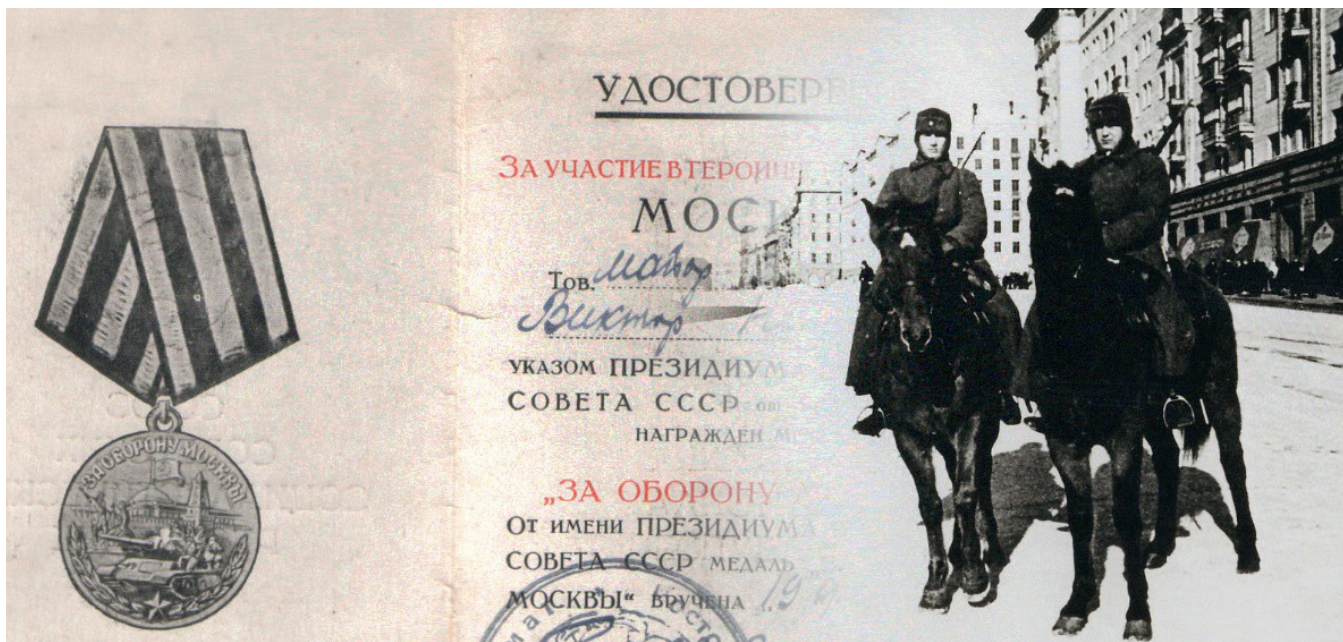 ЗА ОБОРОНУ МОСКВЫ
УДОСТОВЕРЕ
ЗА УЧАСТИЕ В ГЕРОИЧЕ
МОСК
Тов. майор
Виктор
УКАЗОМ ПРЕЗИДИУМА
СОВЕТА СССР от
НАГРАЖДЕН М
„ЗА ОБОРОНУ
ОТ ИМЕНИ ПРЕЗИДИУМА
СОВЕТА СССР МЕДАЛЬ
МОСКВЫ“ ВРУЧЕНА „19